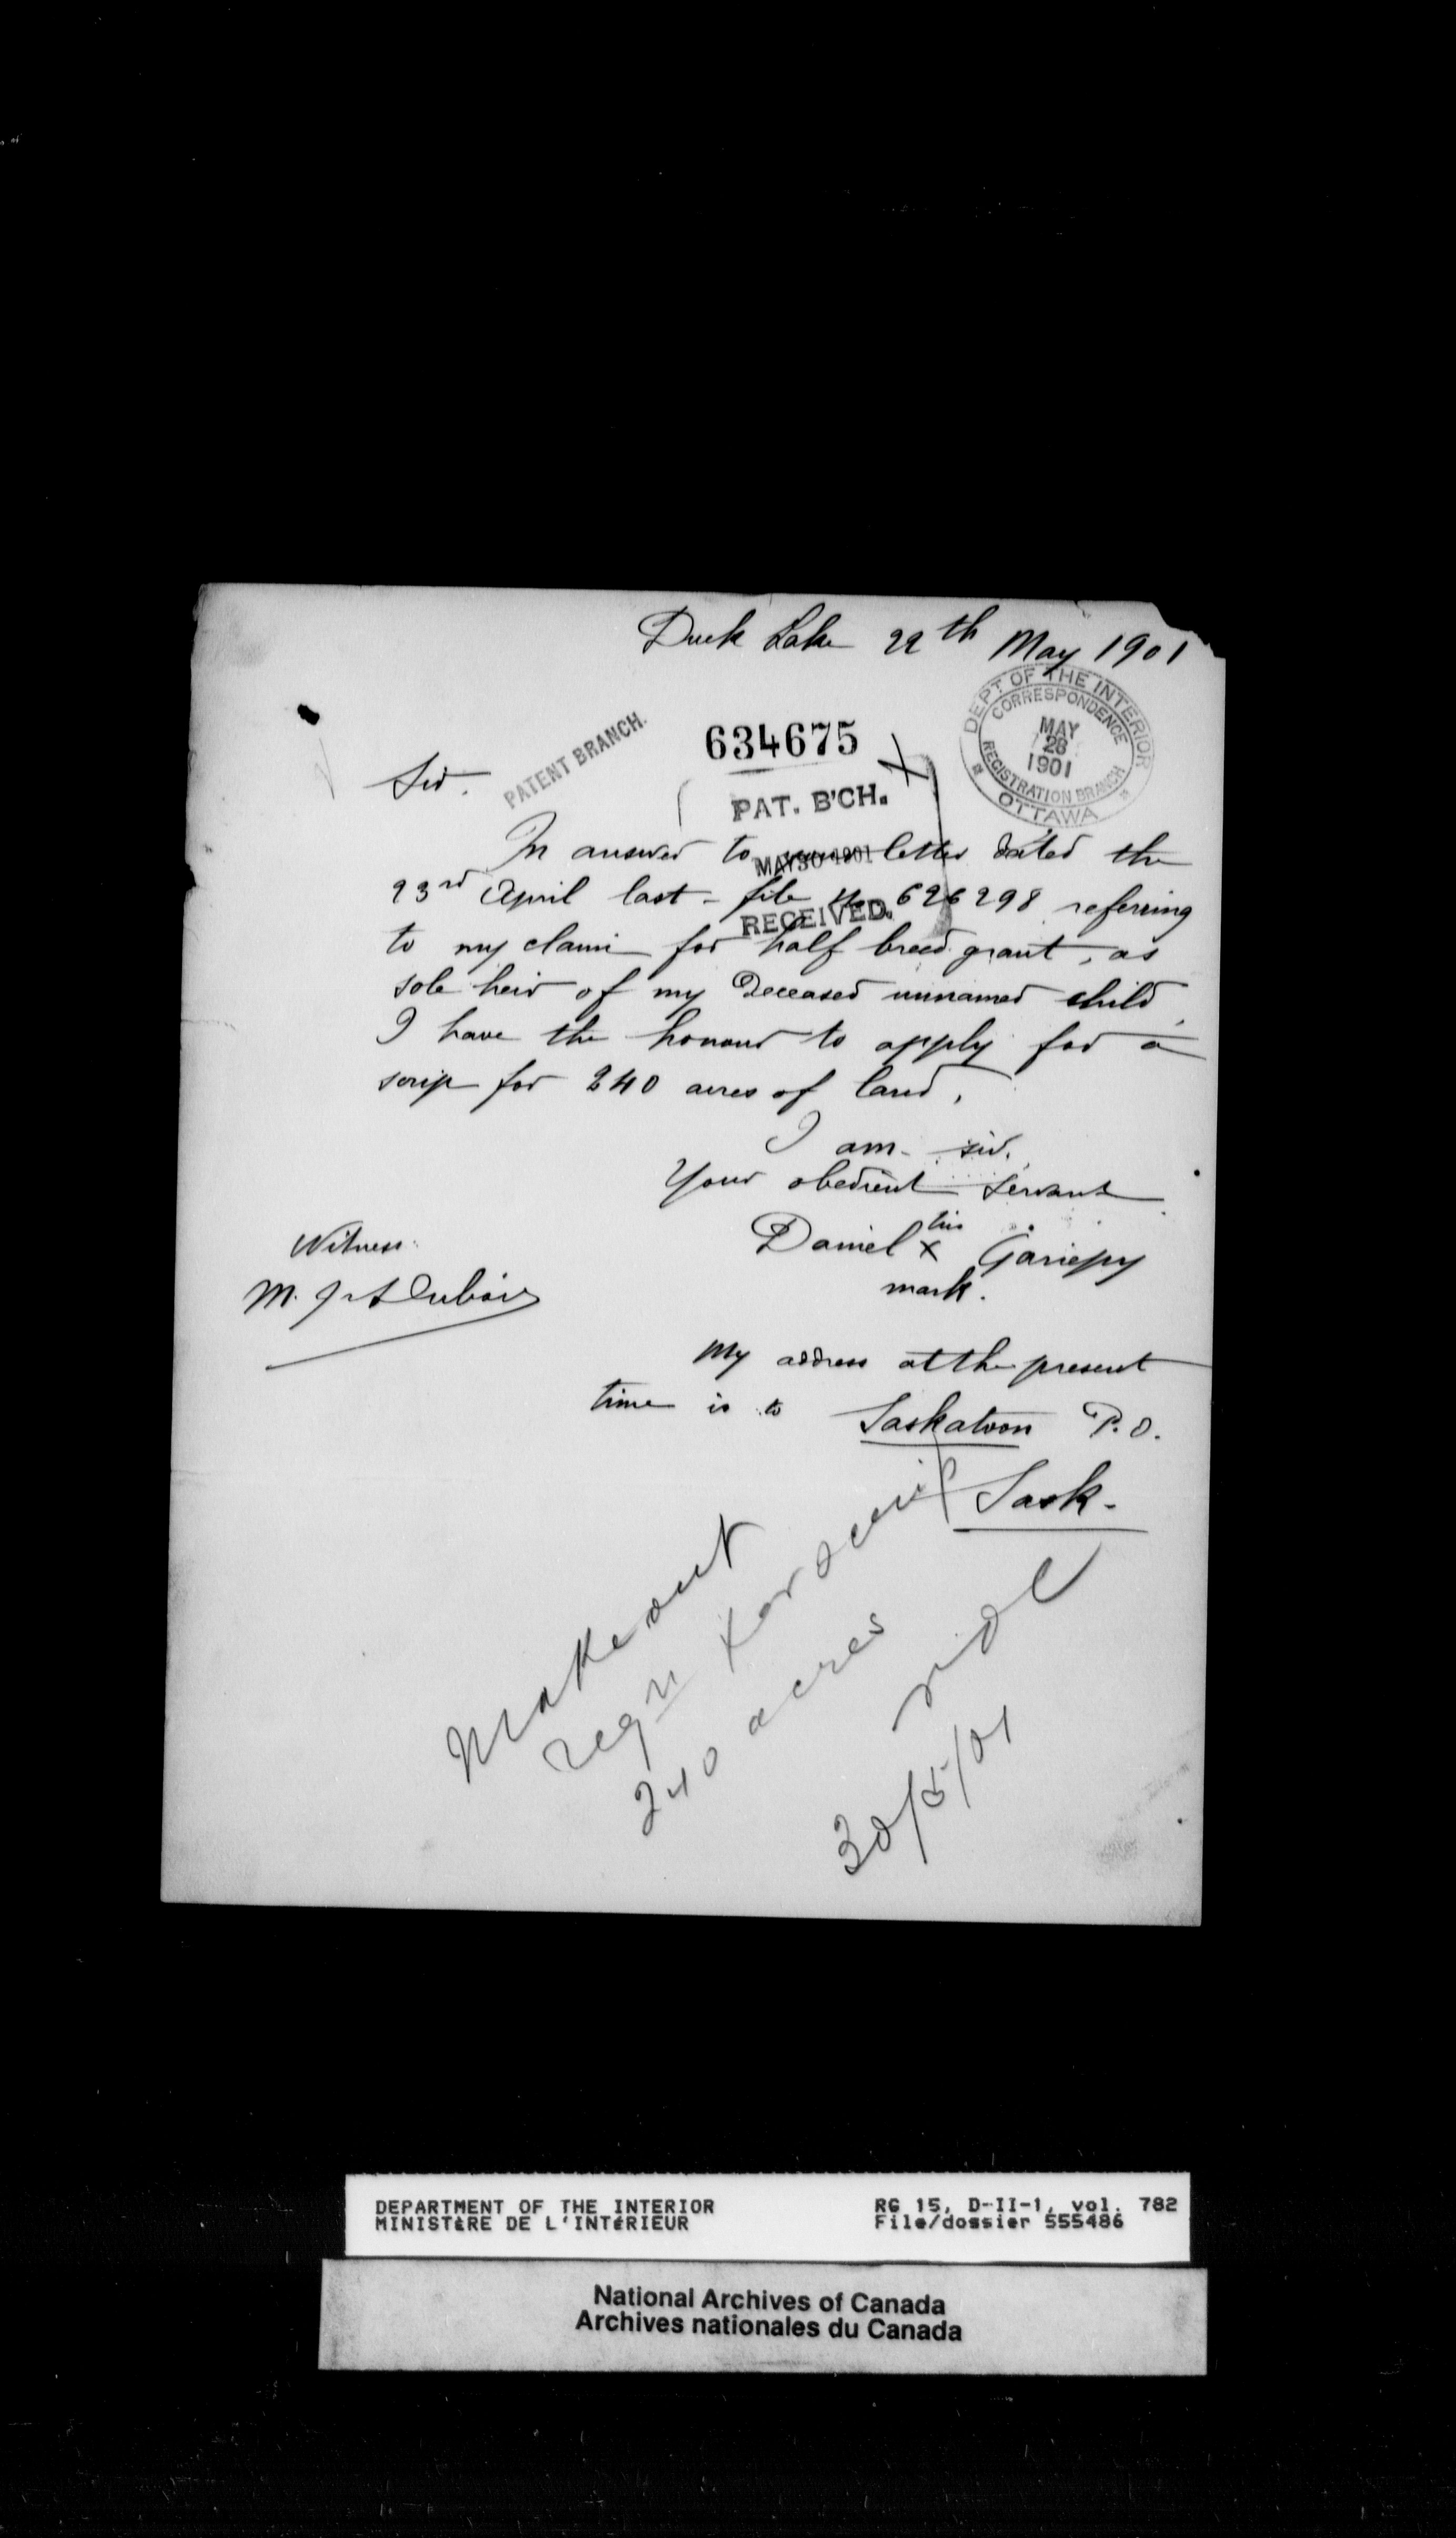 Duck Lake 22th May 1901
DEPT OF THE INTERIOR
CORRESPONDENCE
MAY
28
1901
REGISTRATION BRANCH
OTTAWA
634675
PATENT BRANCH.
Sir.
PAT. B'CH.
MAY 30 1901
RECEIVED.
In answer to your letter dated the
23rd April last - file No 626298 referring
to my claim for half breed grant, as
sole heir of my deceased unnamed child,
I have the honour to apply for a
scrip for 240 acres of land,
I am - sir.
Your obedient servant
Daniel his x Gariepy
mark.
Witness
My address at the present
time is to Saskatoon P.O.
Sask-
Make out
reqn for scrip
240 acres
30/5/01
DEPARTMENT OF THE INTERIOR
MINISTÈRE DE L'INTÉRIEUR
RG 15, D-II-1, vol. 782
File/dossier 555486
National Archives of Canada
Archives nationales du Canada